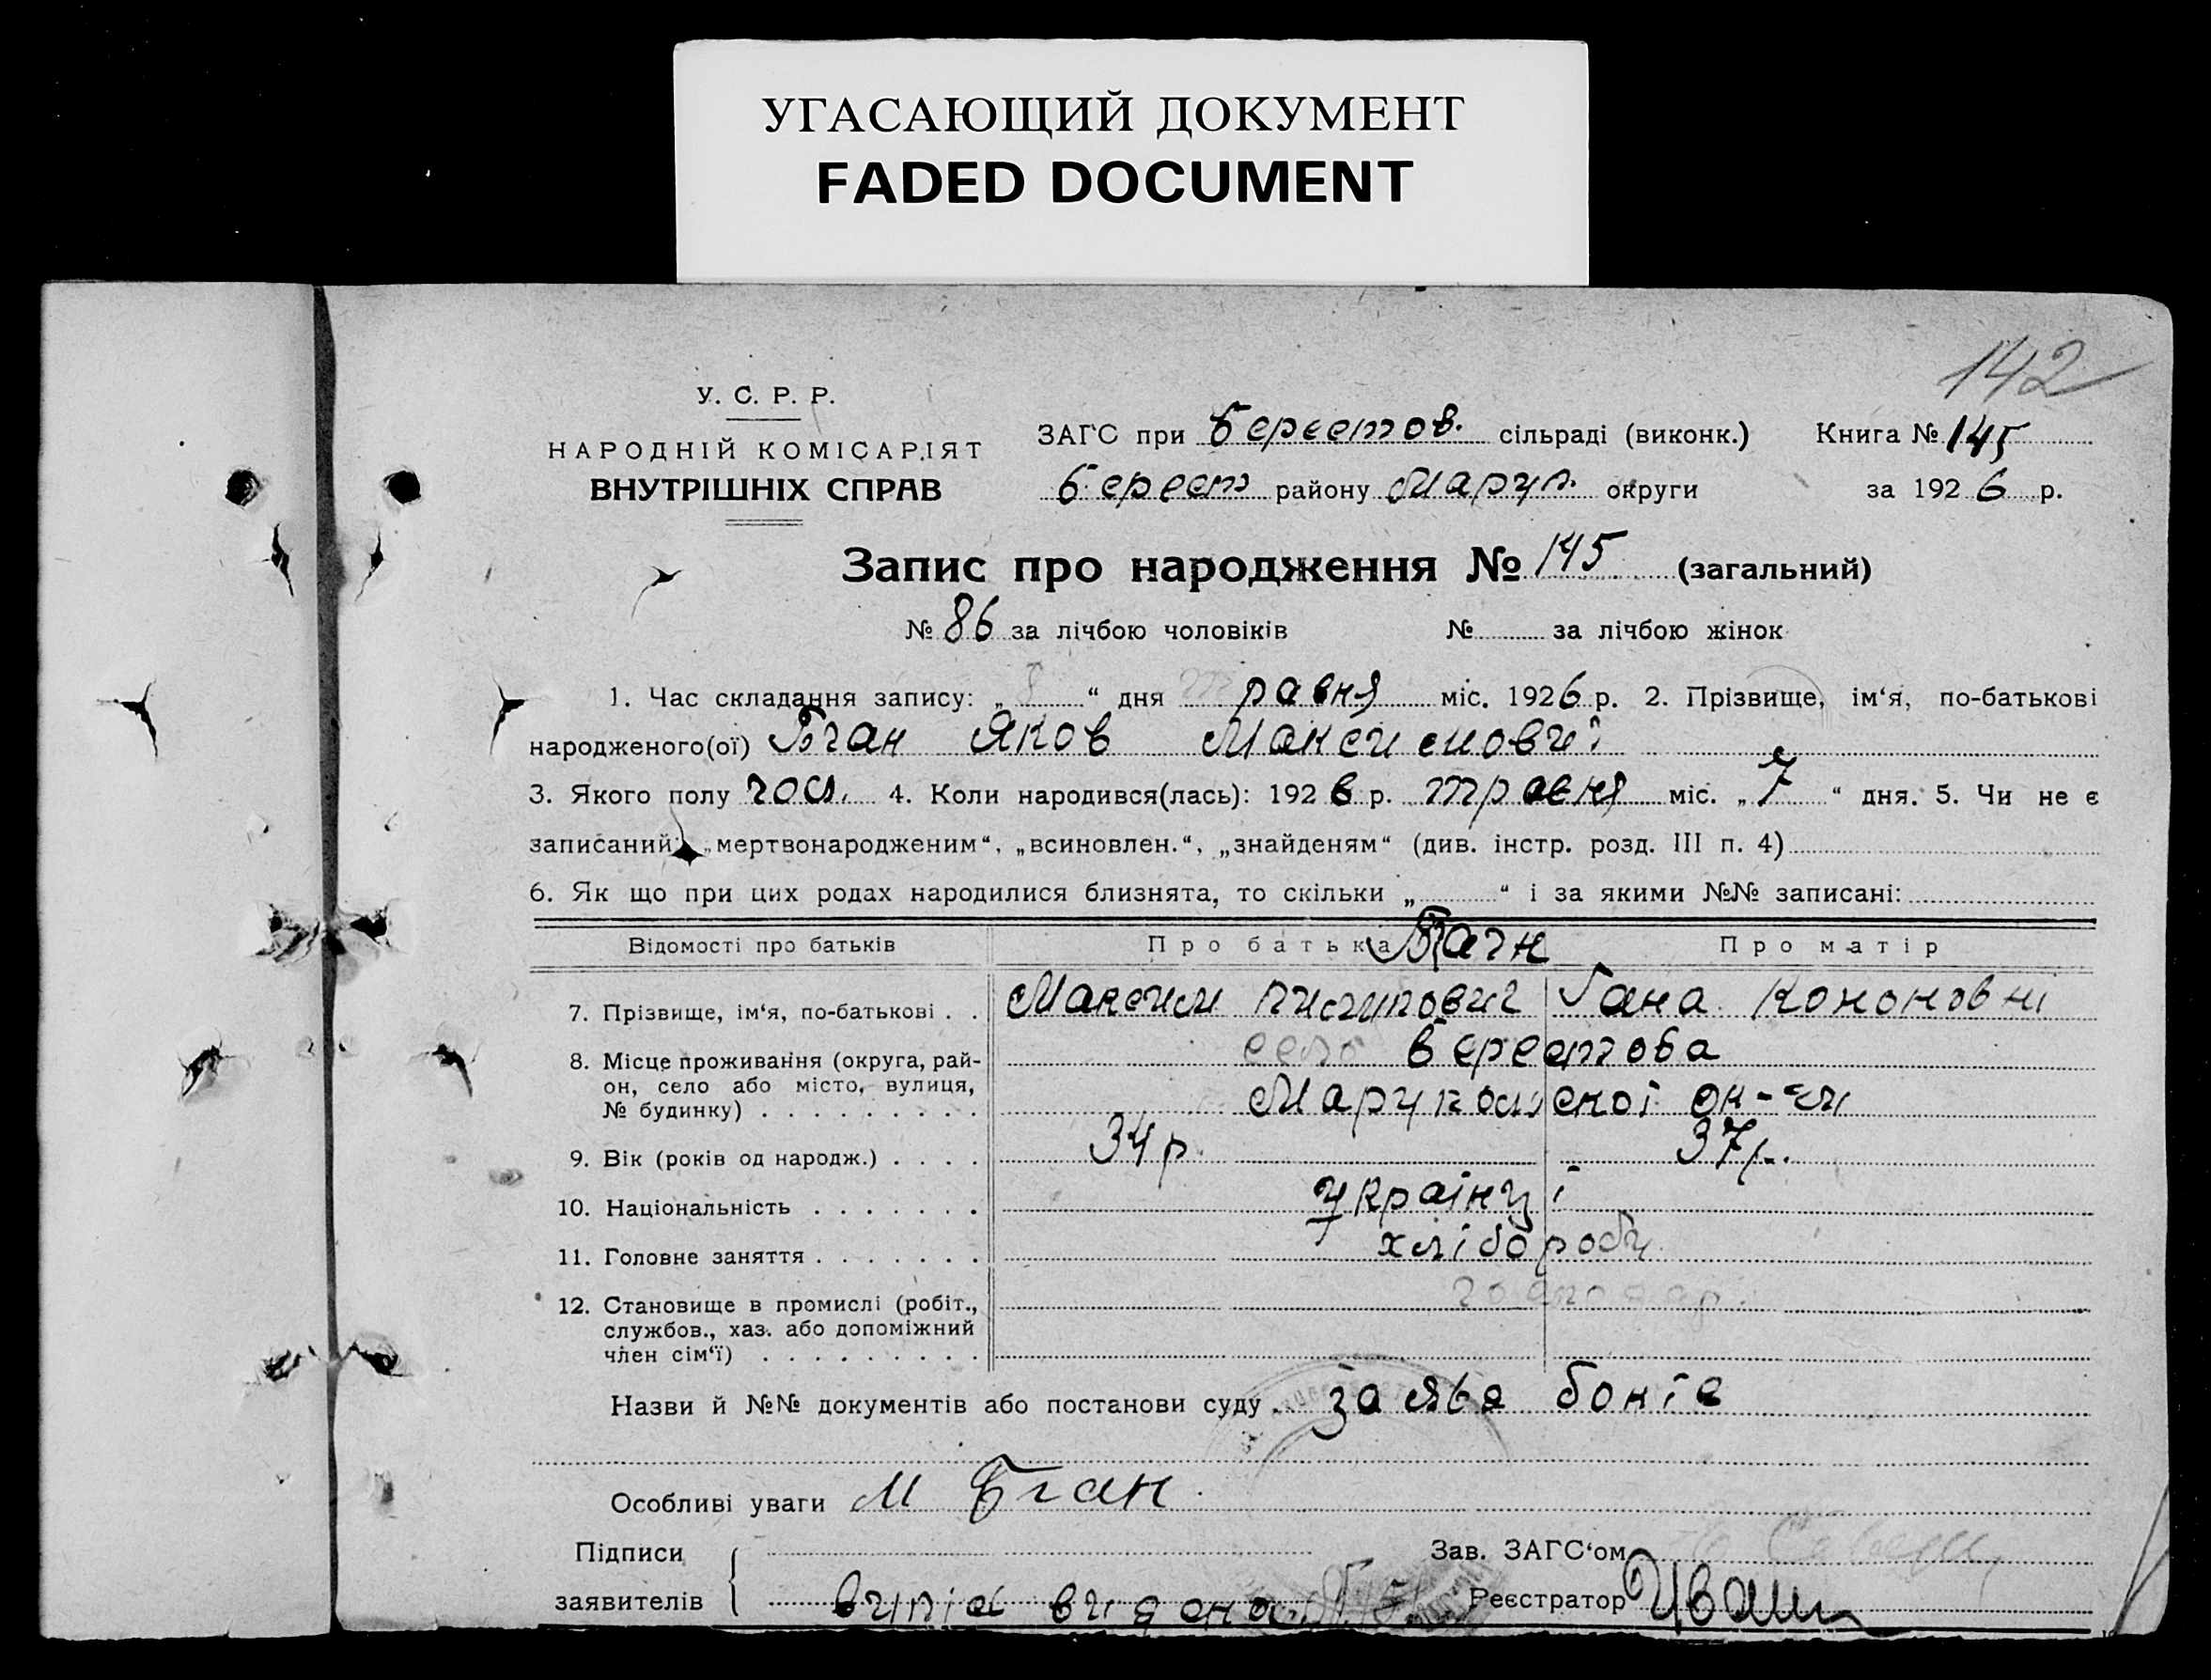 УГАСАЮЩИЙ ДОКУМЕНТ
FADED DOCUMENT
142
У. С. Р. Р.
НАРОДНІЙ КОМІСАРІЯТ
ВНУТРІШНІХ СПРАВ
ЗАГС при Берестов. сільраді (виконк.) Книга № 145
Берест району Маруп. округи за 1926 р.
Запис про народження № 145 (загальний)
№ 86 за лічбою чоловіків № за лічбою жінок
1. Час складання запису: „ “ дня травня міс. 1926 р. 2. Прізвище, ім‘я, по-батькові
народженого(ої) Бган Яков Максимовичі
3. Якого полу чол. 4. Коли народився(лась): 1926 р. травня міс. „7“ дня. 5. Чи не є
записаний: „мертвонародженим“, „всиновлен.“, „знайденям“ (див. інстр. розд. III п. 4)
6. Як що при цих родах народилися близнята, то скільки „ “ і за якими №№ записані:
Відомості про батьків Про батька Про матір
7. Прізвище, ім‘я, по-батькові . . Максим Гана Кононовні
8. Місце проживання (округа, рай- село Берестова
он, село або місто, вулиця, Марупольскоі ок-ги
№ будинку) . . . . . . . . .
9. Вік (років од народж.) . . . . 34 р. 37 р.
10. Національність . . . . . . . українці
11. Головне заняття . . . . . . . хлібороби
12. Становище в промислі (робіт., господар.
службов., хаз. або допоміжний
член сім‘ї) . . . . . . . . .
Назви й №№ документів або постанови суду . заява
Особливі уваги М Бган
Підписи Зав. ЗАГС‘ом
заявителів випис видана Реєстратор Иваш